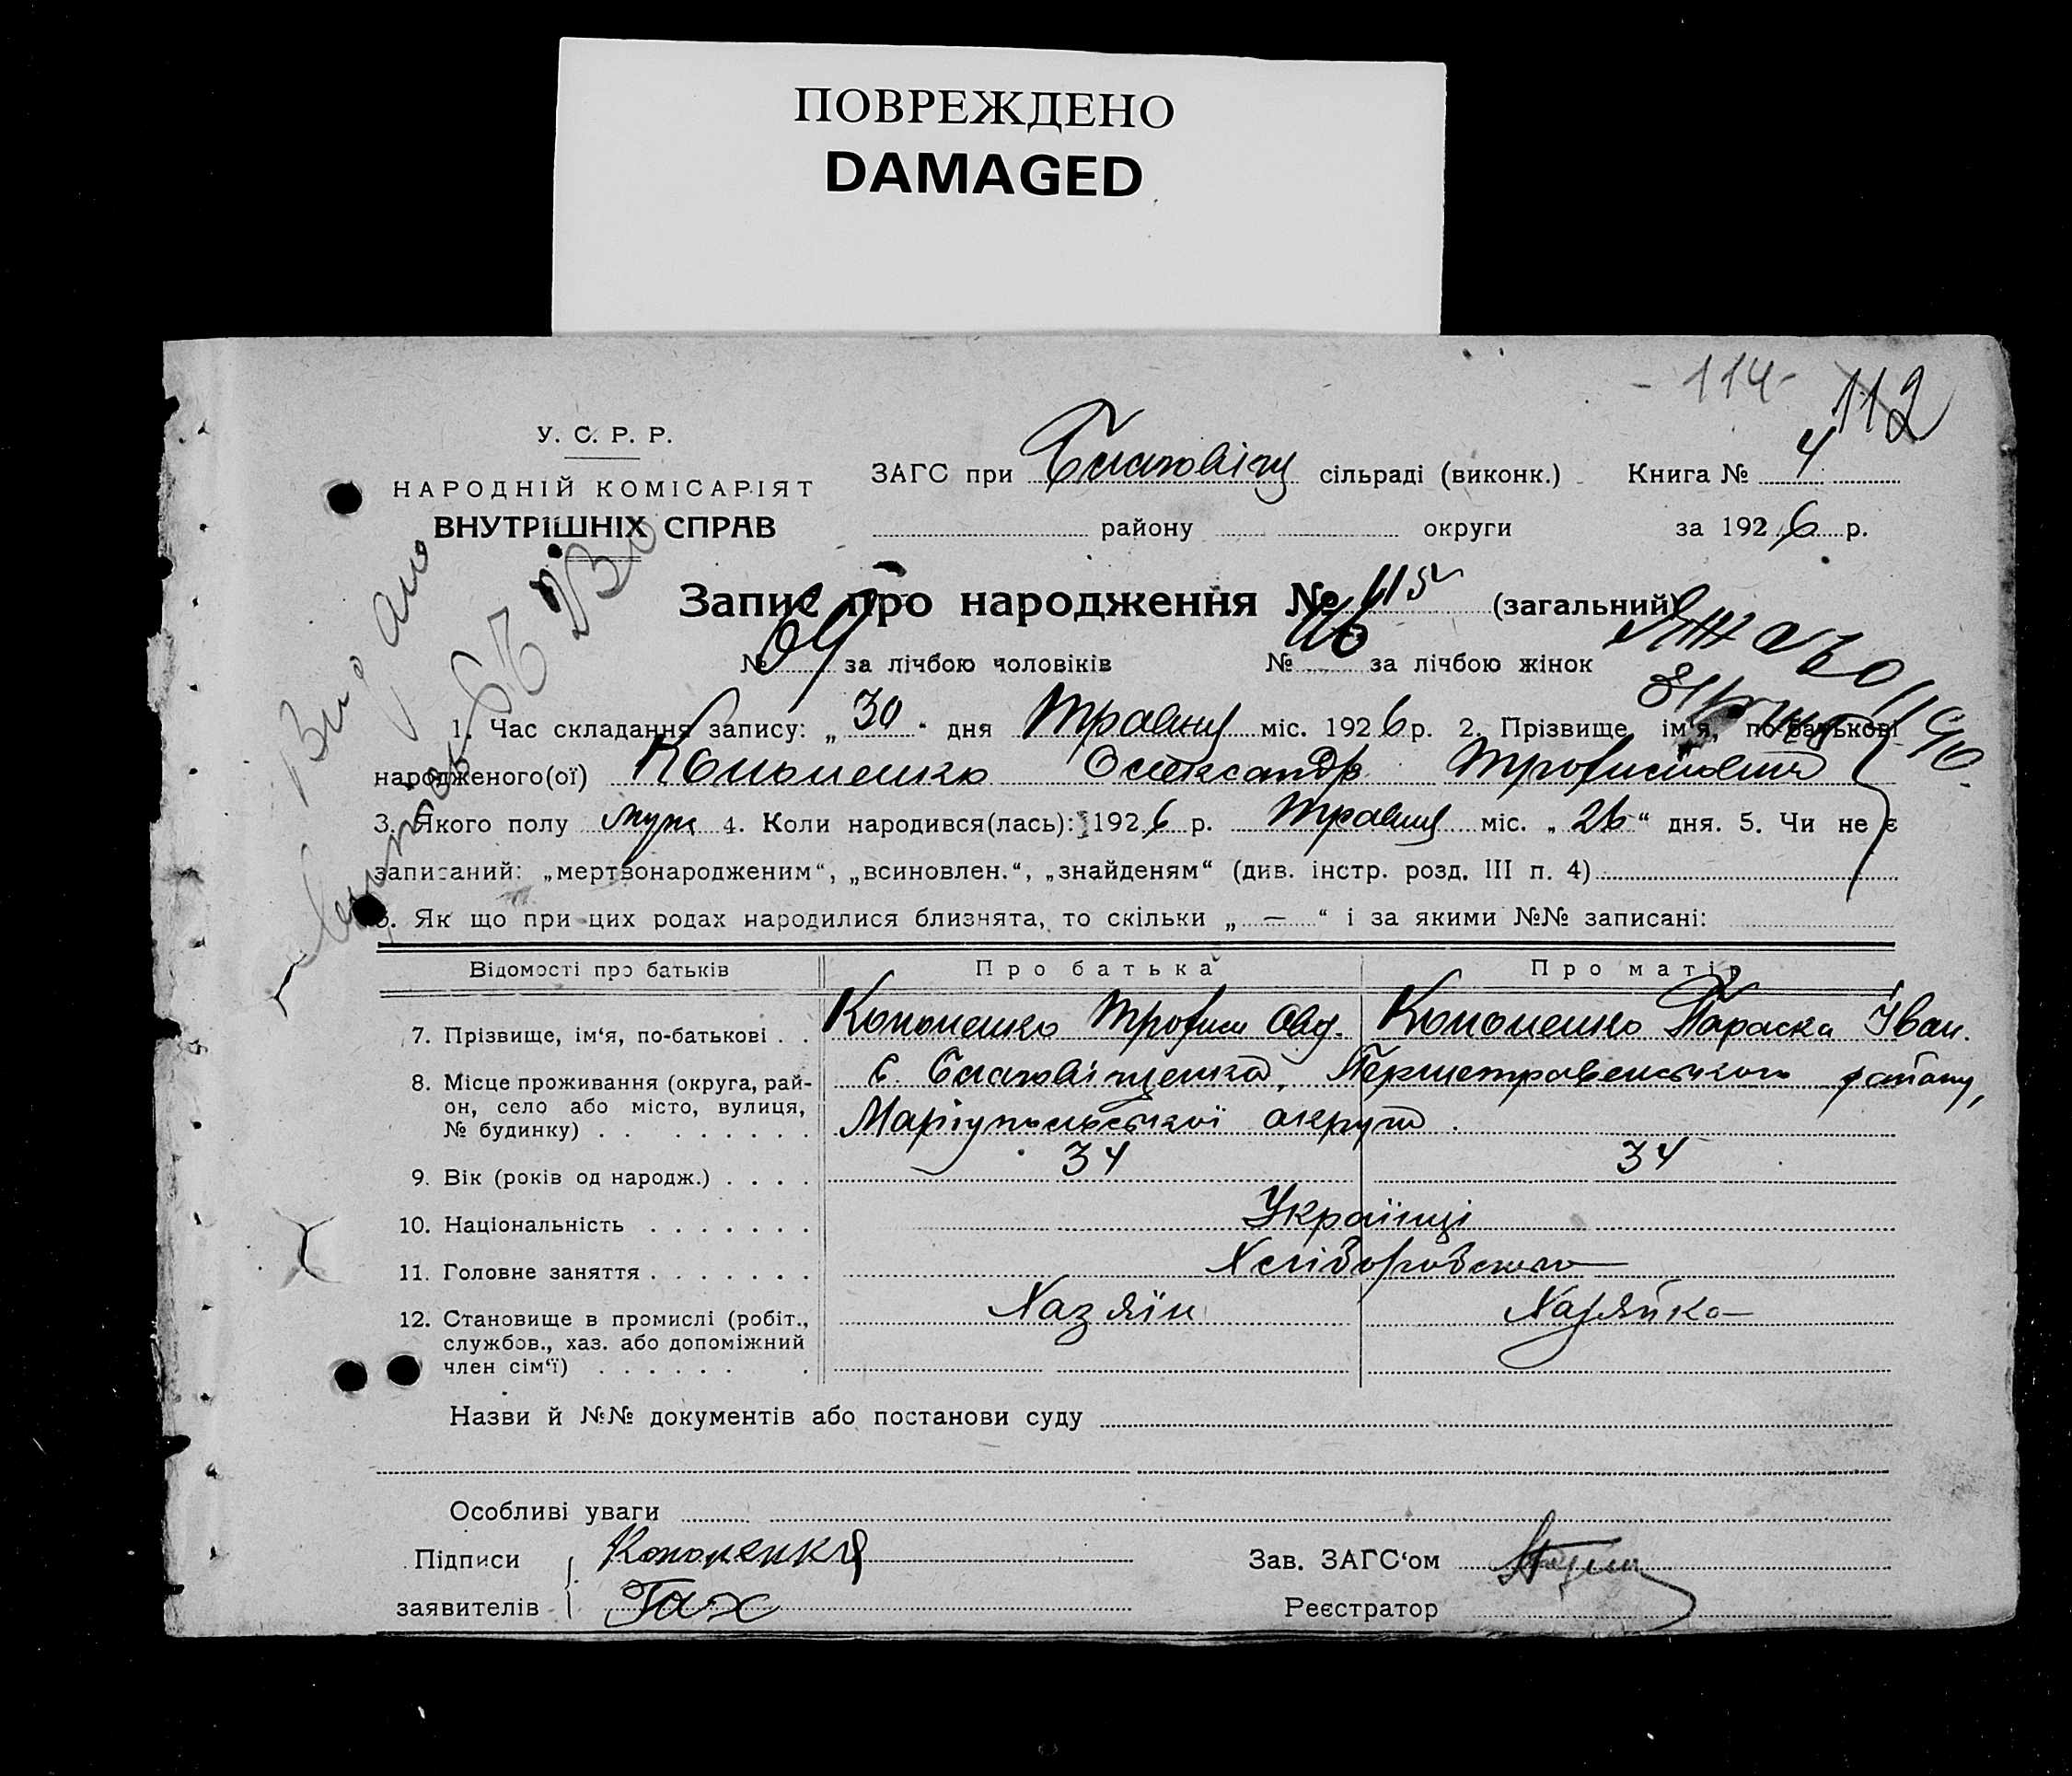 ПОВРЕЖДЕНО
DAMAGED
- 114 -
112
У. С. Р. Р.
НАРОДНІЙ КОМІСАРІЯТ
ВНУТРІШНІХ СПРАВ
ЗАГС при сільраді (виконк.) Книга № 4
району округи за 1926 р.
Запис про народження № 115 (загальний)
№ 69 за лічбою чоловіків № 46 за лічбою жінок
1. Час складання запису: „30“ дня травня міс. 1926 р. 2. Прізвище, ім'я, по-батькові
народженого(ої) Кононенко Олександр Трофимович
3. Якого полу муж 4. Коли народився(лась): 1926 р. травня міс. „26“ дня. 5. Чи не є
записаний: „мертвонародженим“, „всиновлен.“, „знайденям“ (див. інстр. розд. III п. 4)
6. Як що при цих родах народилися близнята, то скільки „—“ і за якими №№ записані:
Відомості про батьків Про батька Про матір
7. Прізвище, ім‘я, по-батькові . . Кононенко Трофим Овд. Кононенко Параска Іван.
8. Місце проживання (округа, рай-
он, село або місто, вулиця,
№ будинку) . . . . . . . .
с. Благовіщенка, Першетравенського району,
Маріупольської округи.
9. Вік (років од народж.) . . . . 34 34
10. Національність . . . . . . . Українці
11. Головне заняття . . . . . . .
12. Становище в промислі (робіт.,
службов., хаз. або допоміжний
член сім‘ї) . . . . . . .
Хазяїн Хазяйка
Назви й №№ документів або постанови суду
Особливі уваги
Підписи Кононенко Зав. ЗАГС‘ом
заявителів Гах Реєстратор
Видано